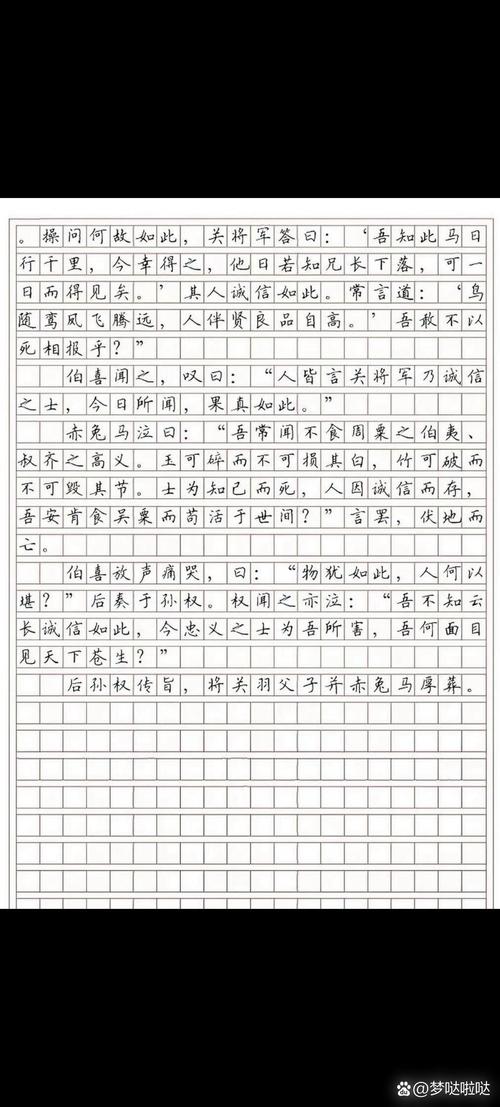 。操问何故如此，关将军答曰：‘吾知此马日
行千里，今幸得之，他日若知兄长下落，可一
日而得见矣。’其人诚信如此。常言道：‘鸟
随鸾凤飞腾远，人伴贤良品自高。’吾敢不以
死相报乎？”
伯喜闻之，叹曰：“人皆言关将军乃诚信
之士，今日所闻，果真如此。”
赤兔马泣曰：“吾常闻不食周粟之伯夷、
叔齐之高义。玉可碎而不可损其白，竹可破而
不可毁其节。士为知己而死，人因诚信而存，
吾安肯食吴粟而苟活于世间？”言罢，伏地而
亡。
伯喜放声痛哭，曰：“物犹如此，人何以
堪？”后奏于孙权。权闻之亦泣：“吾不知云
长诚信如此，今忠义之士为吾所害，吾何面目
见天下苍生？”
后孙权传旨，将关羽父子并赤兔马厚葬。
@梦哒啦哒